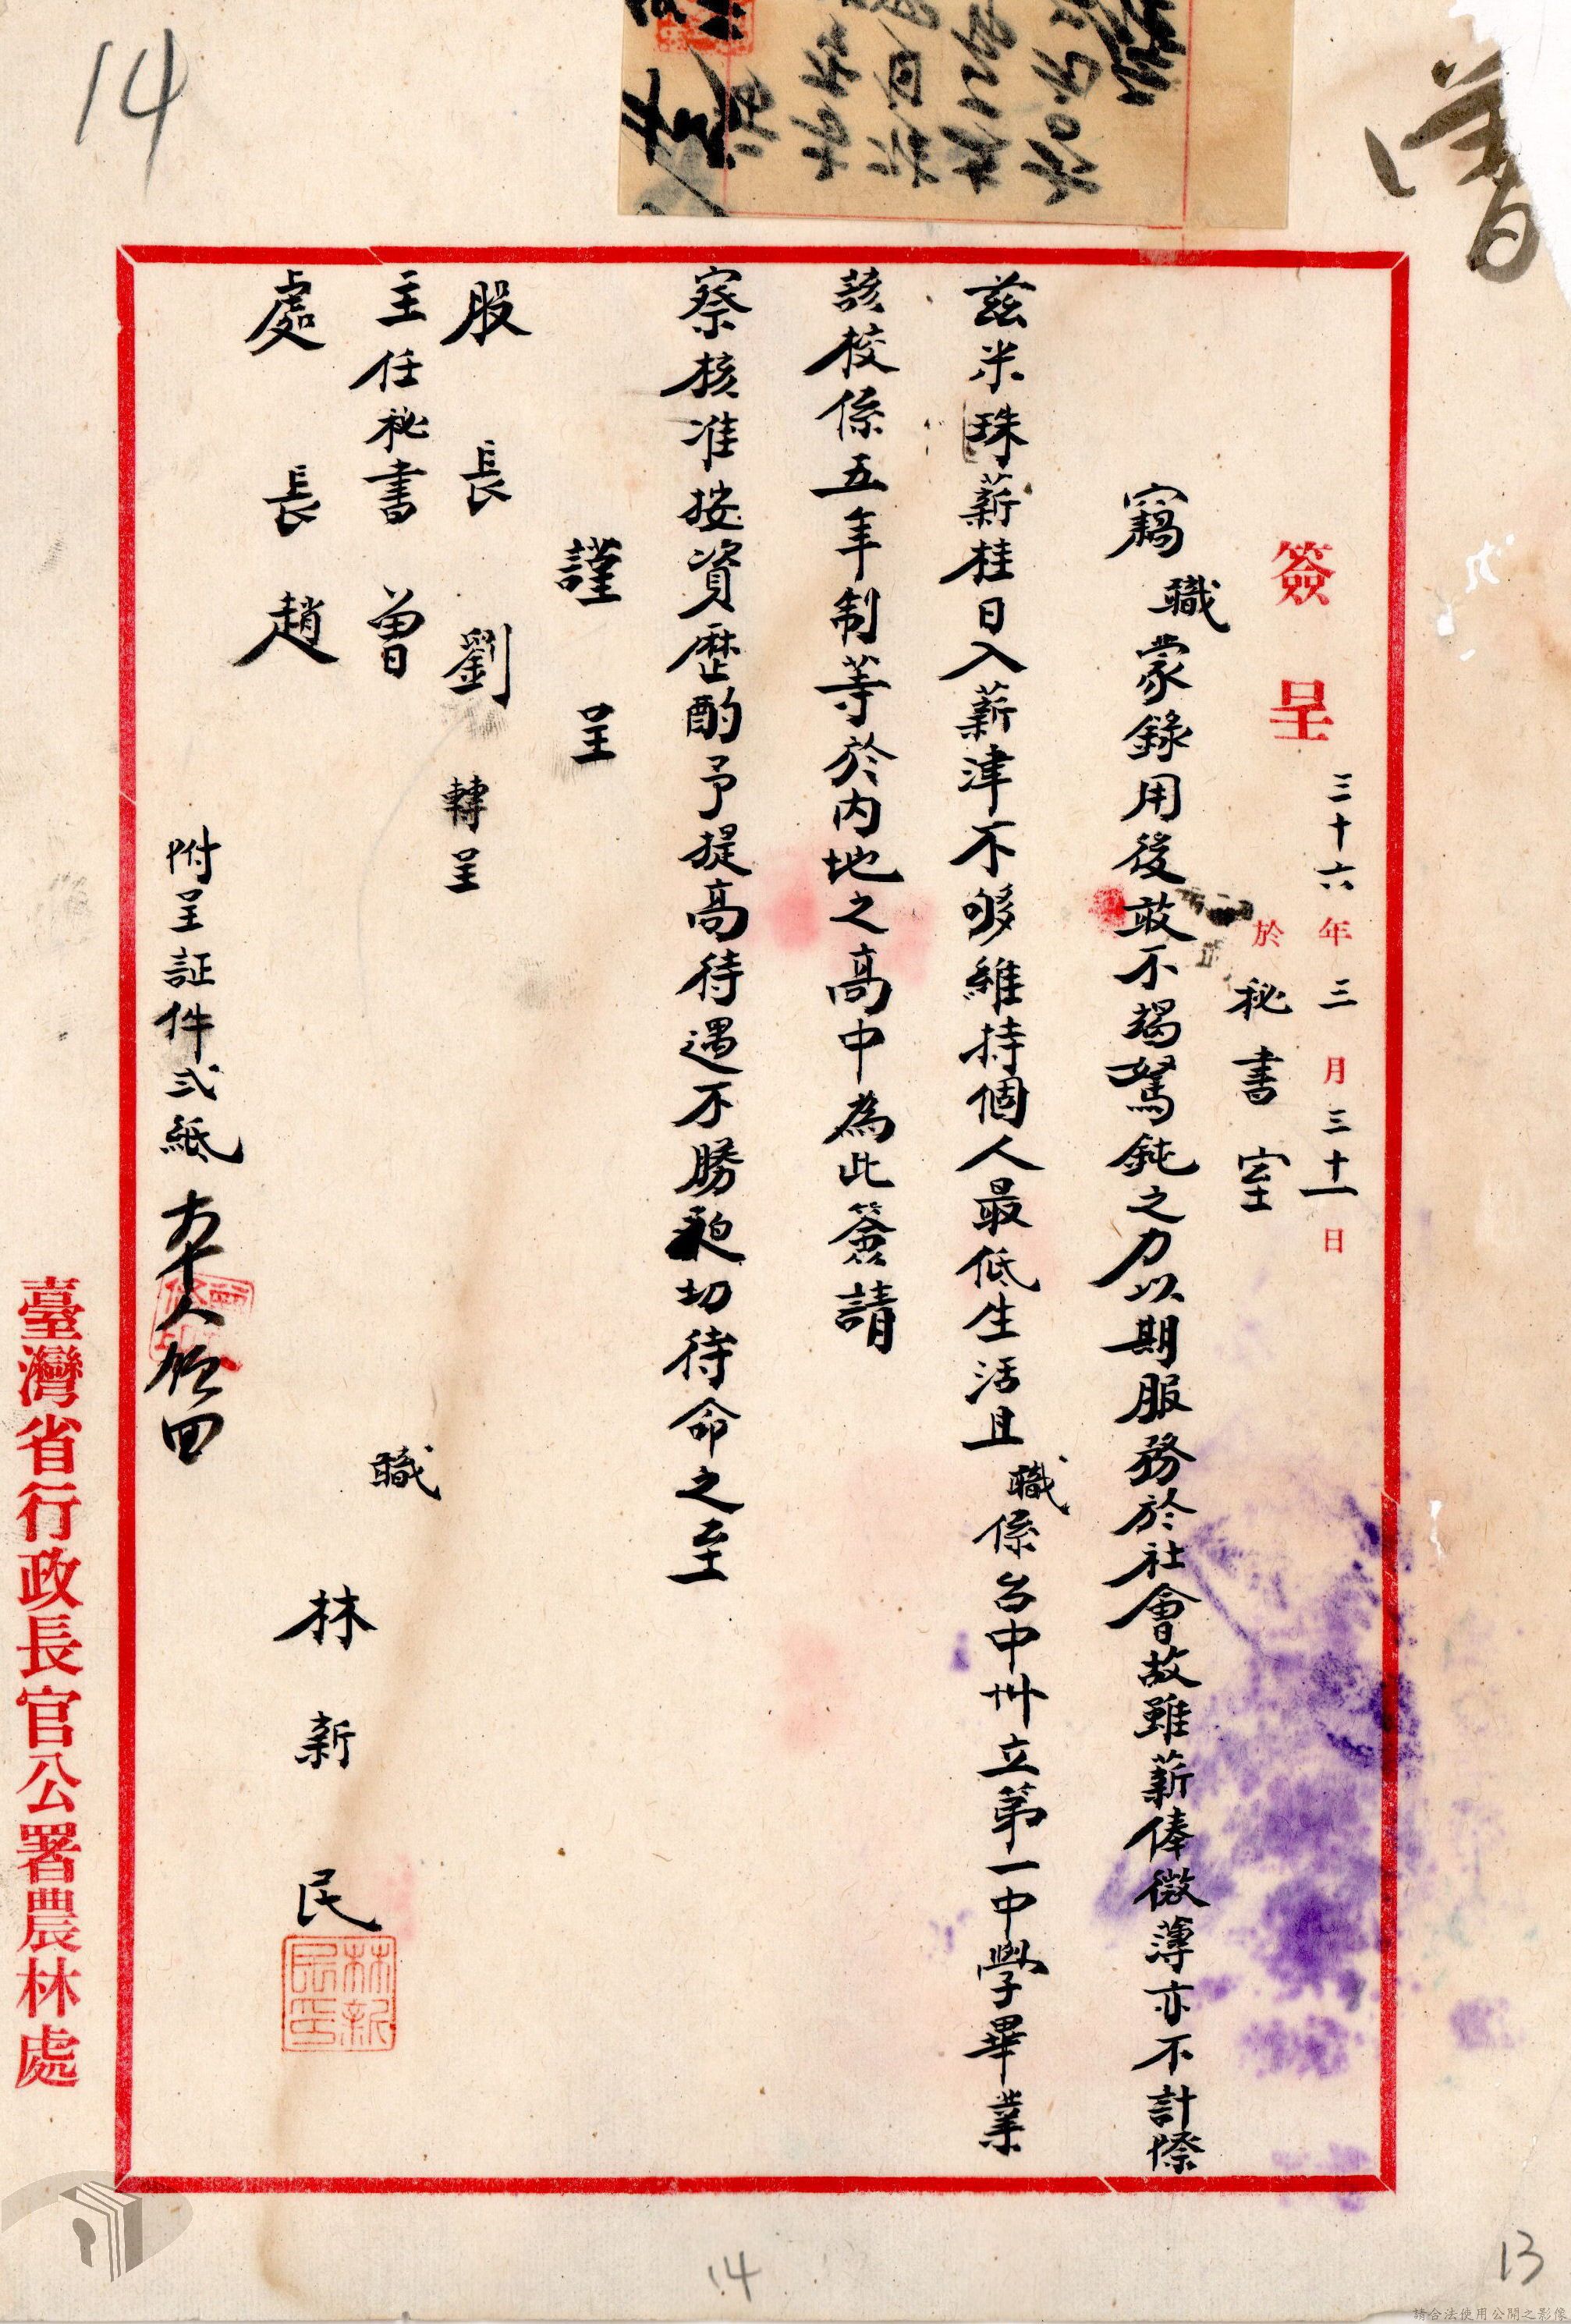 14
曾
簽呈
三十六年三月三十一日
於秘書室
竊職蒙錄用後敢不竭駑鈍之力以期服務於社會故雖薪俸微薄亦不計際
茲米珠薪桂日入薪津不够維持個人最低生活且職係台中卅立第一中學畢業
該校係五年制等於內地之高中為此簽請
察核准按資歷酌予提高待遇不勝懇切待命之至
謹呈
股長劉轉呈
主任秘書曾
處長趙
職
林新民
林新民印
附呈証件弍紙
本人領回
臺灣省行政長官公署農林處
14
13
請合法使用公開之影像